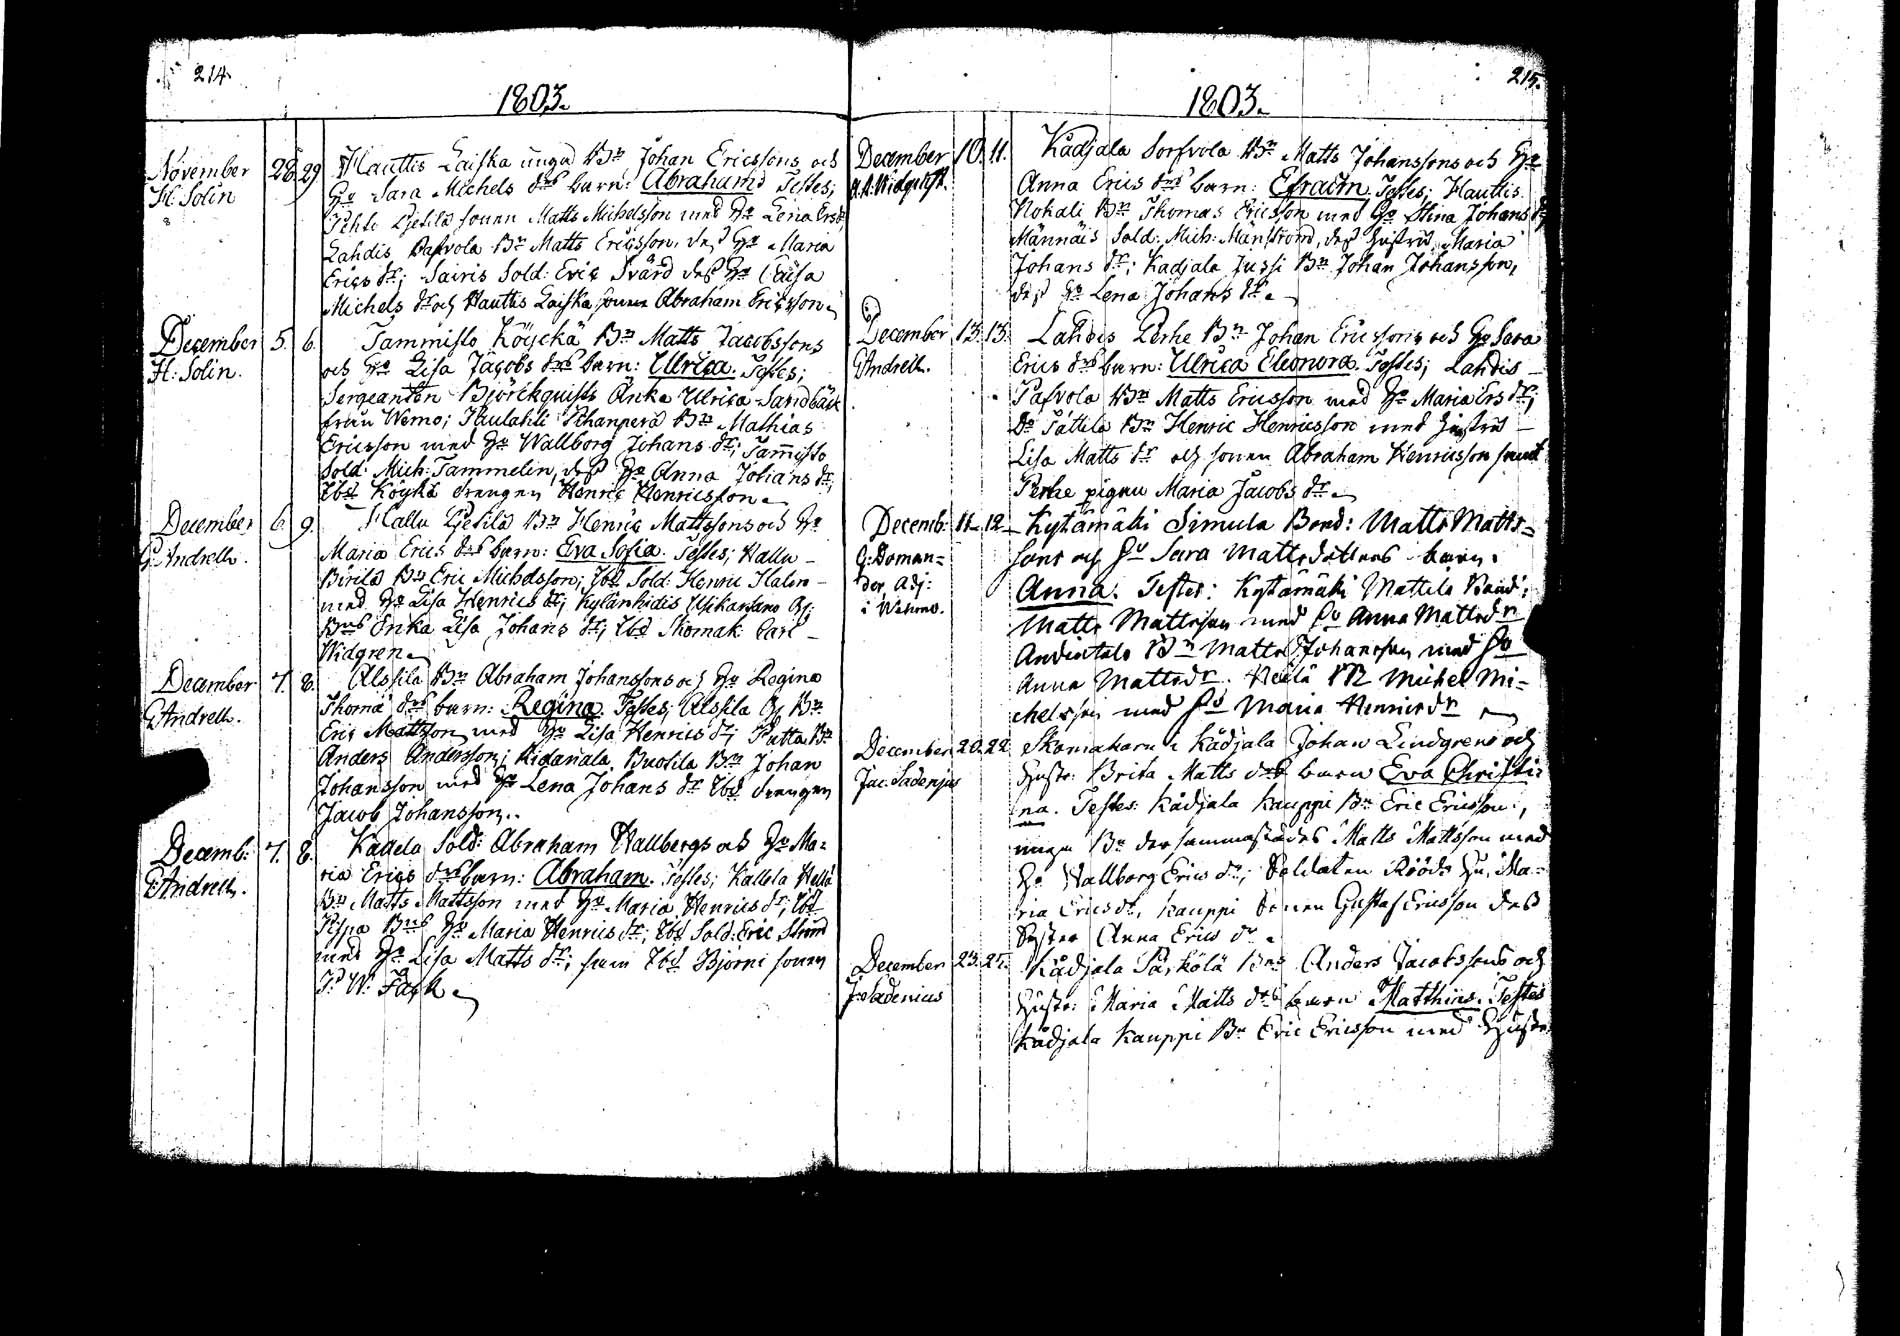 214.
1803.
November 28. 29. Hauttis Laiska unga Bn Johan Ericssons och
H. Solin Ho Sara Michels drs barn: Abraham. Testes;
Pehls sonen Matts Michelsson med Ho Lena Ersdr,
Lahdis Pasvola Bn Matts Ericsson, dess Ho Maria
Erics dr; Sairis Sold: Eric Svärd dess Ho Caisa
Michels dr och Hauttis Laiska sonen Abraham Ericsson
December 5. 6. Tammisto Köyckä Bn Matts Jacobssons
H: Solin. och Ho Lisa Jacobs drs barn: Ulrica. Testes;
Sergeanten Björckquists Änka Ulrica Sandbäck
från Wemo; Bn Mathias
Ericsson med Ho Wallborg Johans dr; Tammisto
Sold: Mich: Tammelin, dess Ho Anna Johans dr,
Ibd Köykä drengen Henric Henricsson
December 6. 9. Hallu Bn Henric Mattssons och Ho
G. Andrell. Maria Erics drs barn: Eva Sofia. Testes; Hallu
Pirilä Bn Eric Michelsson; Ibd Sold: Henric Halin
med Ho Lisa Henrics dr; Kylänhidis
Bns Enka Lisa Johans dr; Ibd Skomak: Carl
Widgren
December 7. 8. Alssila Bn Abraham Johanssons och Ho Regina
G Andrell. Thomä drs barn: Regina. Testes; Alssila Bn
Eric Mattsson med Ho Lisa Henrics dr; Putta Bn
Anders Andersson; Bn Johan
Johansson med Ho Lena Johans dr Ibd drengen
Jacob Johansson.
Decemb: 7. 8. Kallela Sold: Abraham Wallbergs och Ho Ma=
G Andrell. ria Erics drs barn: Abraham. Testes; Kallela
Bn Matts Mattsson med Ho Maria Henrics dr; Ibd
Pispa Bns Ho Maria Henrics dr; Ibd Sold: Eric Strand
med Ho Lisa Matts dr; samt Ibd Björni sonen
215.
1803.
December 10. 11. Kådjala Sorfvola Bn Matts Johanssons och Ho
Widqvist. Anna Erics drs barn: Efraim. Testes; Hauttis
Nohali Bn Thomas Ericsson med Ho Stina Johans dr
Männäis Sold: Mich: Mänström, dess hustru Maria
Johans dr; Kadjala Jussi Bn Johan Johansson,
dess Ho Lena Johans dr
December 13. 15. Lahdis Perhe Bn Johan Ericssons och Ho Sara
G Andrell. Erics drs barn: Ulrica Eleonora. Testes; Lahdis
Pasvola Bn Matts Ericsson med Ho Maria Ers dr;
Do Tättilä Bn Henric Henricsson med hustru
Lisa Matts dr och sonen Abraham Henricsson samt
Perhe pigan Maria Jacobs dr
Decemb: 11 12 Kytämäki Simula Bond: Matts Matts=
G: Doman= sons och Hu Sara Mattsdotters barn:
der, Adj: Anna. Testes: Kytämäki Mattela Bond:
i Wehmo. Matts Mattsson med Hu Anna Mattsdr
Bn Matts Johansson med Hu
Anna Mattsdr. Bn Michel Mi=
chelsson med Hu Maria Henricsdr
December 20. 22 Skomakaren i Kådjala Johan Lindgrens och
Jac: Sadenius Hustr: Brita Matts drs barn Eva Christi=
na. Testes: Kådjala Kauppi Bn Eric Ericsson;
unga Bn dersammastädes Matts Mattsson med
Ho Wallborg Erics dr; Soldaten Rööds Hu, Ma=
ria Ericsdr, Kauppi Sonen Gustaf Ericsson dess
Syster Anna Erics dr
December 23. 25. Kådjala Särkölä Bns Anders Jacobssons och
J: Sadenius Hustr: Maria Matts drs barn Matthias. Testes
Kådjala Kauppi Bn Eric Ericsson med Hustr: